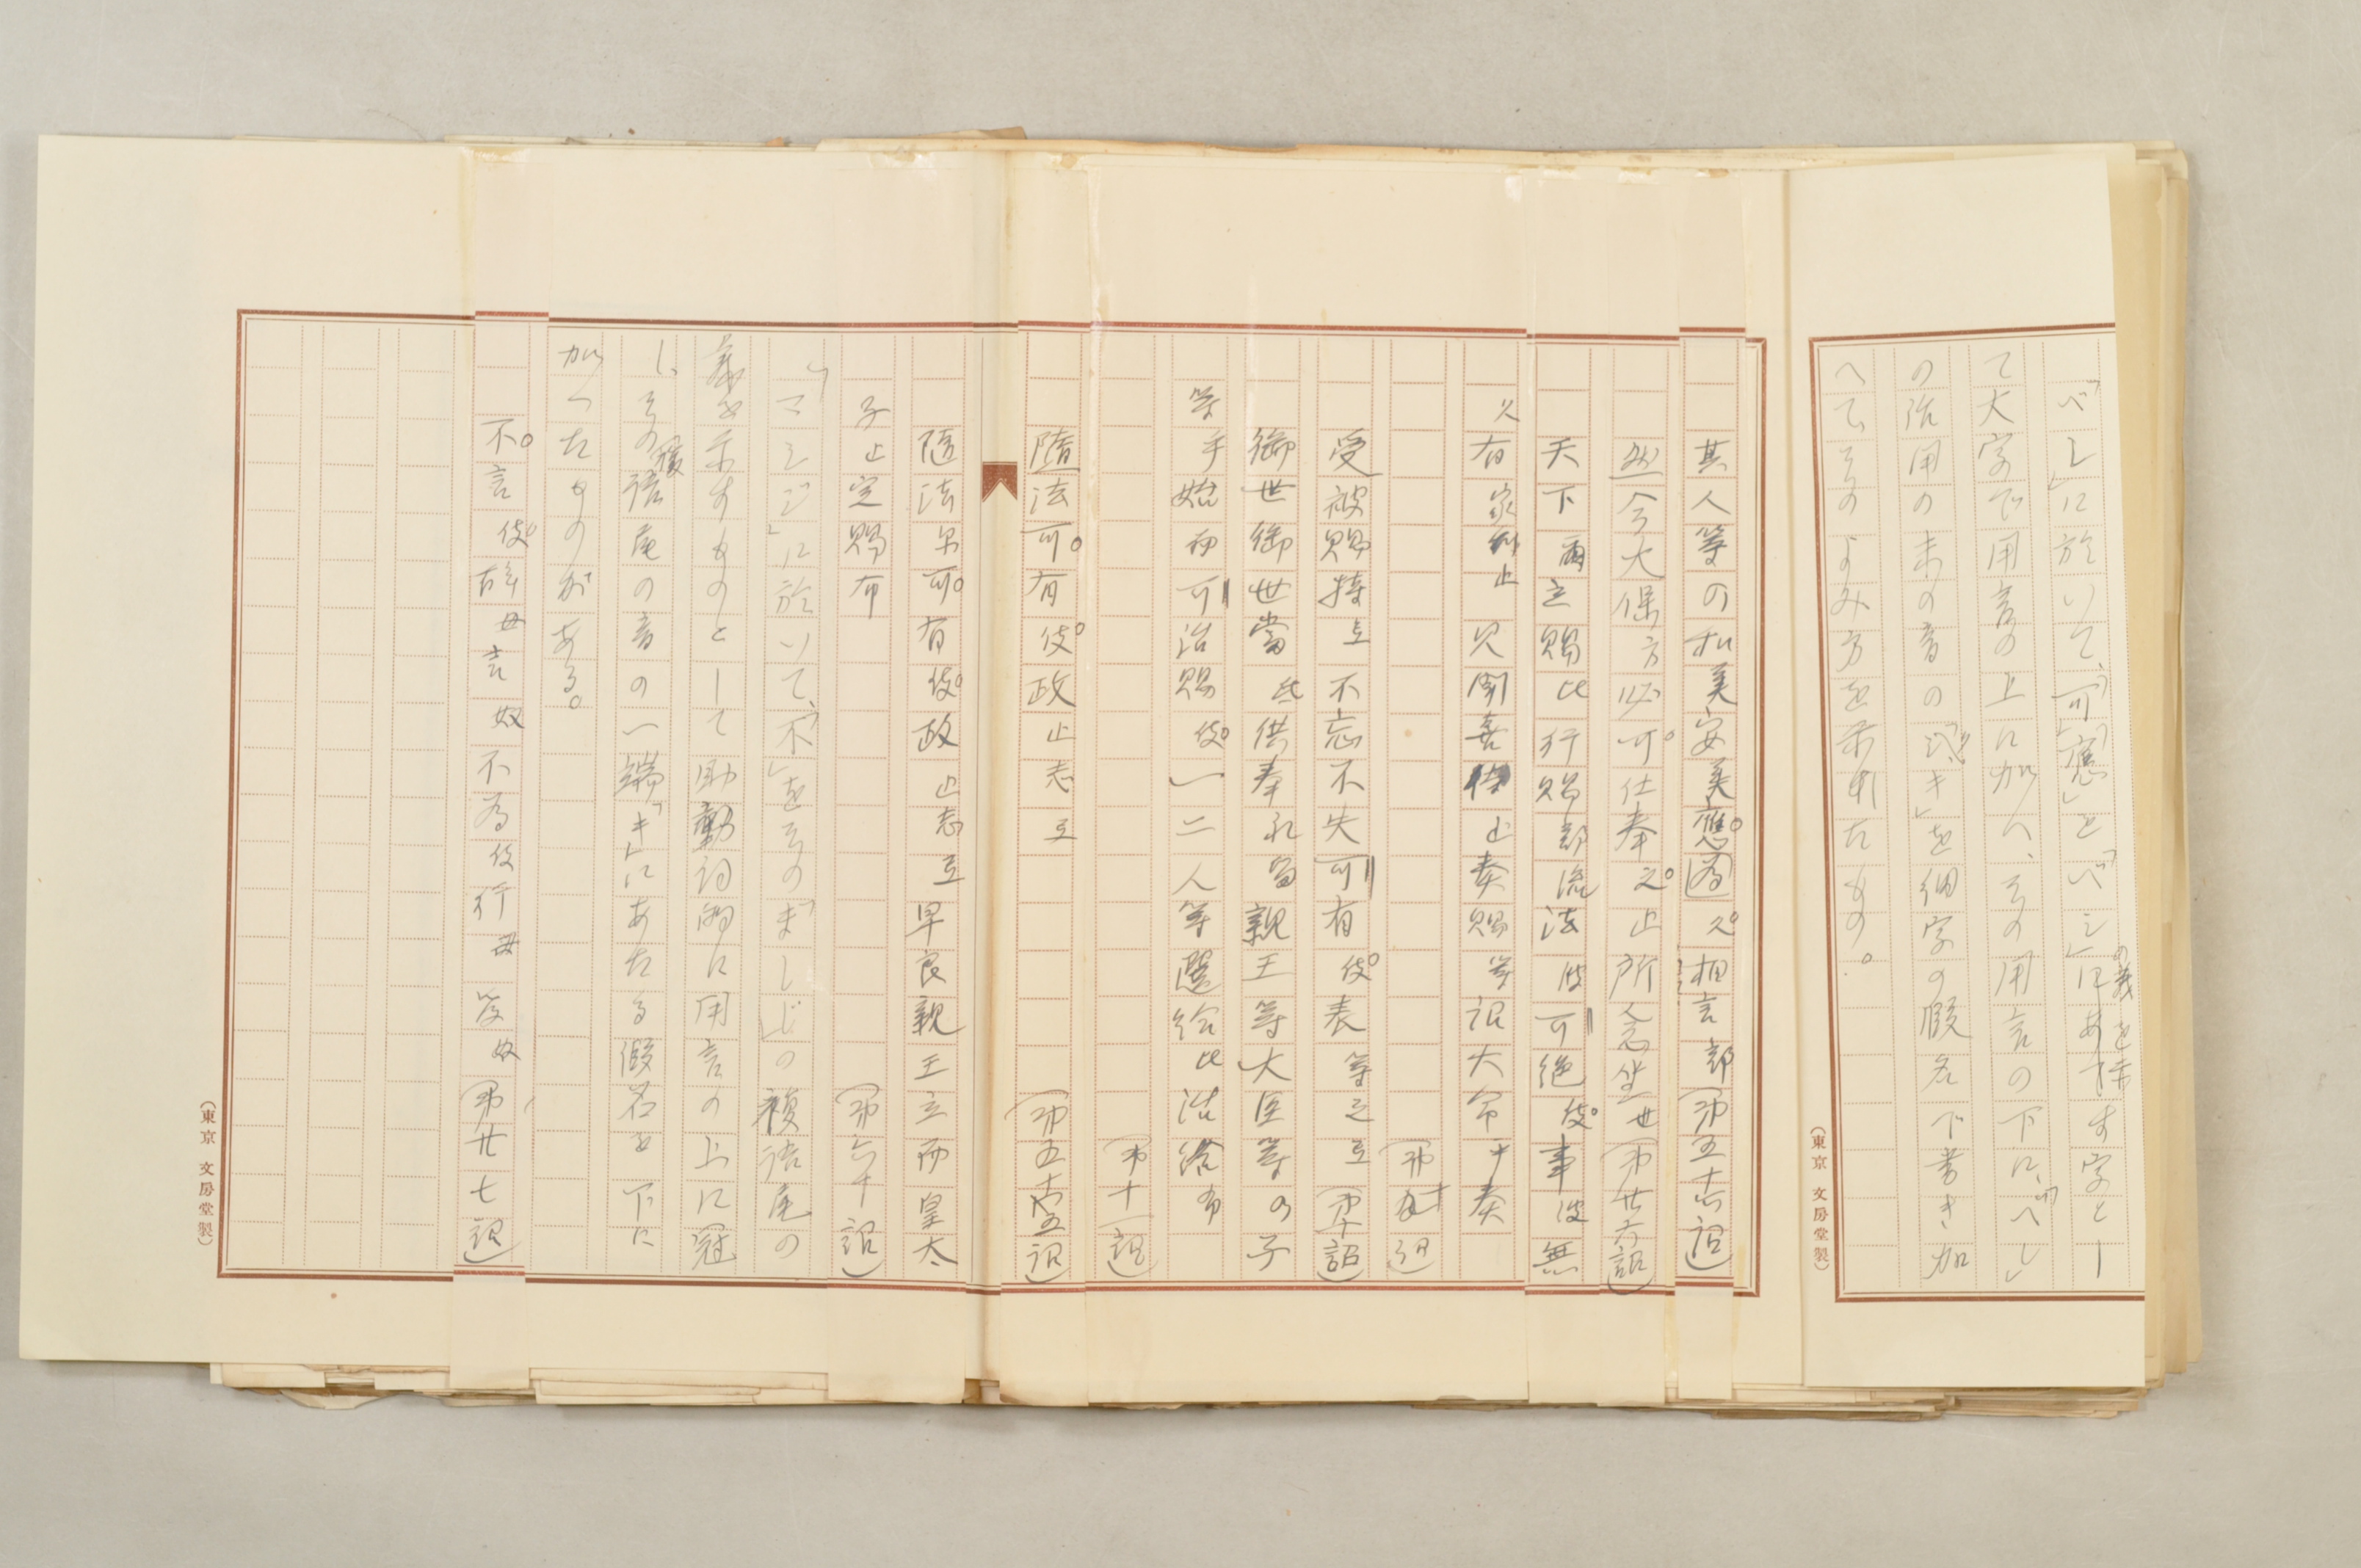 「ベシ」に於いて、「可」「應」と「ベシ」の義を示す字とし
て大字で用言の上に加へ、その用言の下に、「べし」
の活用の末の音の「之、キ」を細字の假名で書き加
へて、そのよみ方を示したもの。
其人等の和美安美應為久相言部
然今大保方必可仕奉之止所念坐世(第廿六詔)
天下尓立賜比行賜部流法波可絶伎事波無
久有家利止 聞喜 止奏賜等詔大命乎奏
受被賜持立不忘不失可有伎表等之互
御世御世當 供奉礼留親王等大臣等の子
等乎始而可治賜伎一二人等選給比治給布
(第十一詔)
隨法可有伎政止志互
隨法尓可有伎政止志互早良親王立而皇太
子止定賜布(第六十詔)
「マシジ」に於いて、「不」をその「ましじ」の複語尾の
義を示すものとして助動詞的に用言の上に冠
し、その複語尾の音の一端「キ」にあたる假名を下に
加へたものがある。
不言伎辞母言奴不為伎行母為奴(第廿七詔)
(東京 文房堂製)
(東京 文房堂製)